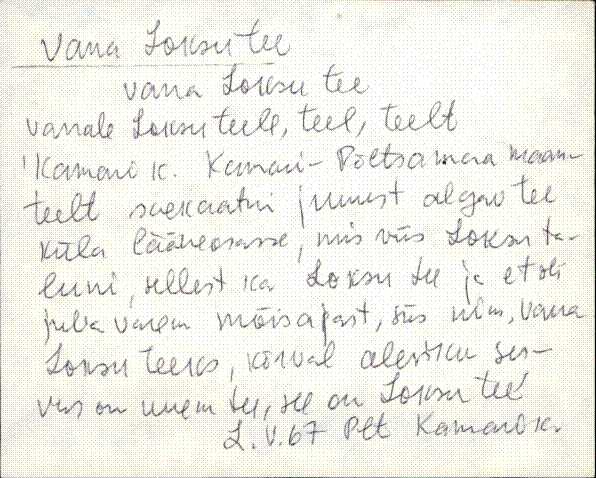 Vana Loksu tee
vana Loksu tee
vanale Loksu teele, teel, teelt
Kamari k. Kamari - Põltsamaa maan-
teelt saekaatri juurest algav tee
küla lääneosasse, mis viis Loksu ta-
luni, sellest ka Loksu tee ja et oli
juba varem mõisa ajast, siis nim. vana
Loksu teeks, kõrval aleviku ser-
vas on uuem tee, see on Loksu tee
L.V. 67 Plt Kamari k.